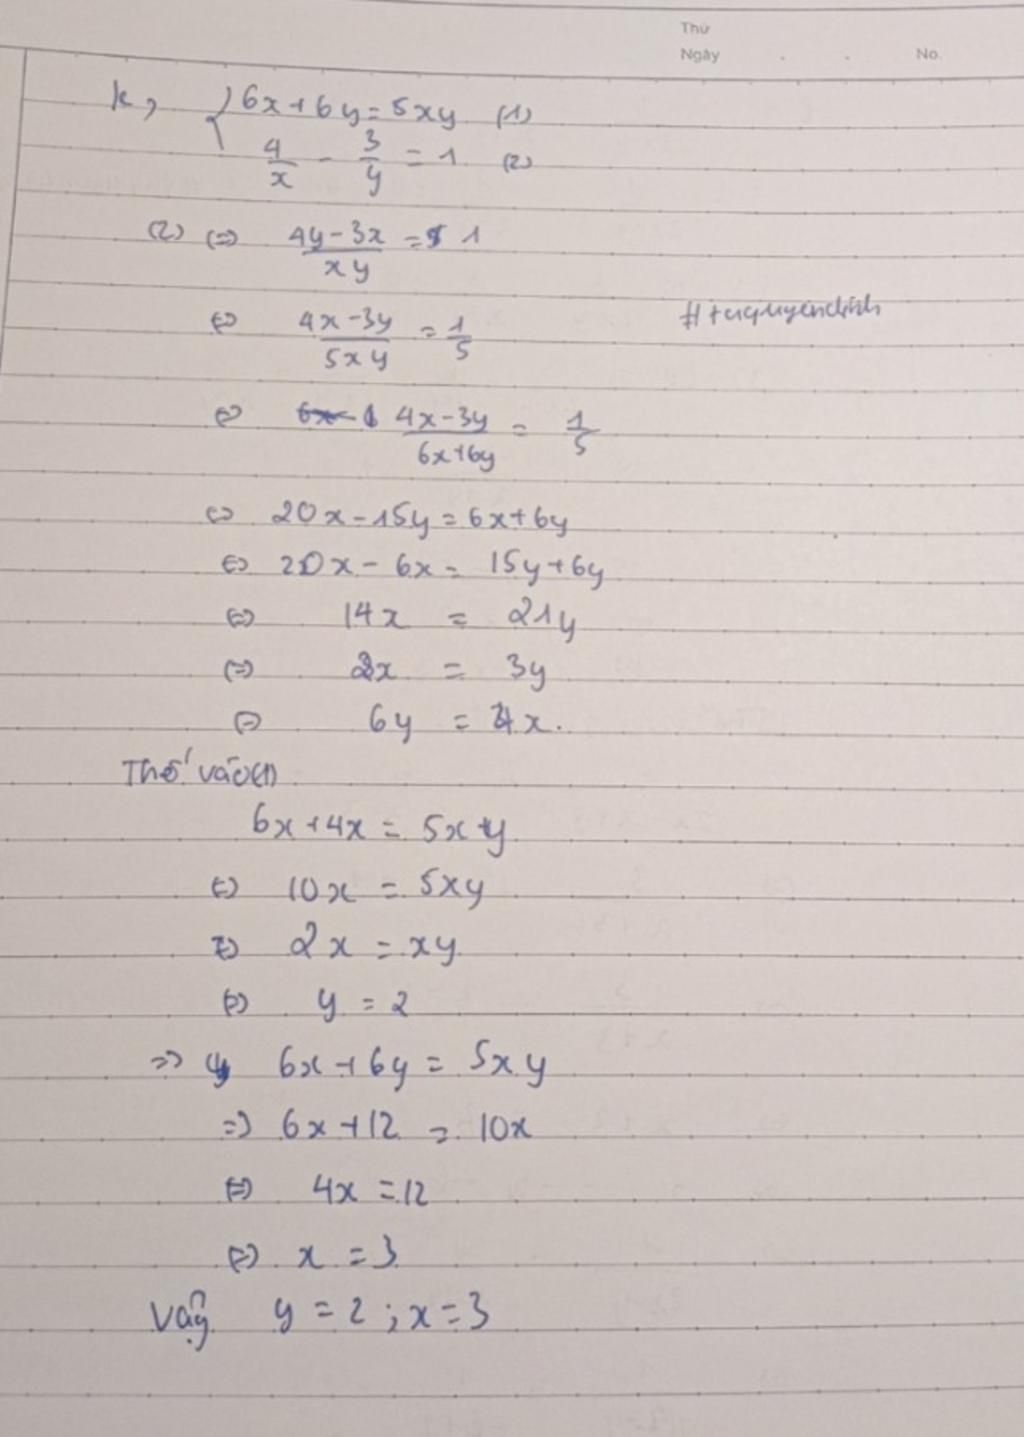 Thứ
Ngày . . No.
k, { 6x + 6y = 5xy (1)
4/x - 3/y = 1 (2)
(2) <=> (4y - 3x)/(xy) = 1
<=> (4x - 3y)/(5xy) = 1/5
#tuquyendinh
<=> (4x - 3y)/(6x + 6y) = 1/5
<=> 20x - 15y = 6x + 6y
<=> 20x - 6x = 15y + 6y
<=> 14x = 21y
<=> 2x = 3y
<=> 6y = 4x.
Thế vào (1)
6x + 4x = 5xy
<=> 10x = 5xy
<=> 2x = xy
<=> y = 2
=> 6x + 6y = 5xy
=> 6x + 12 = 10x
<=> 4x = 12
<=> x = 3
Vậy y = 2 ; x = 3